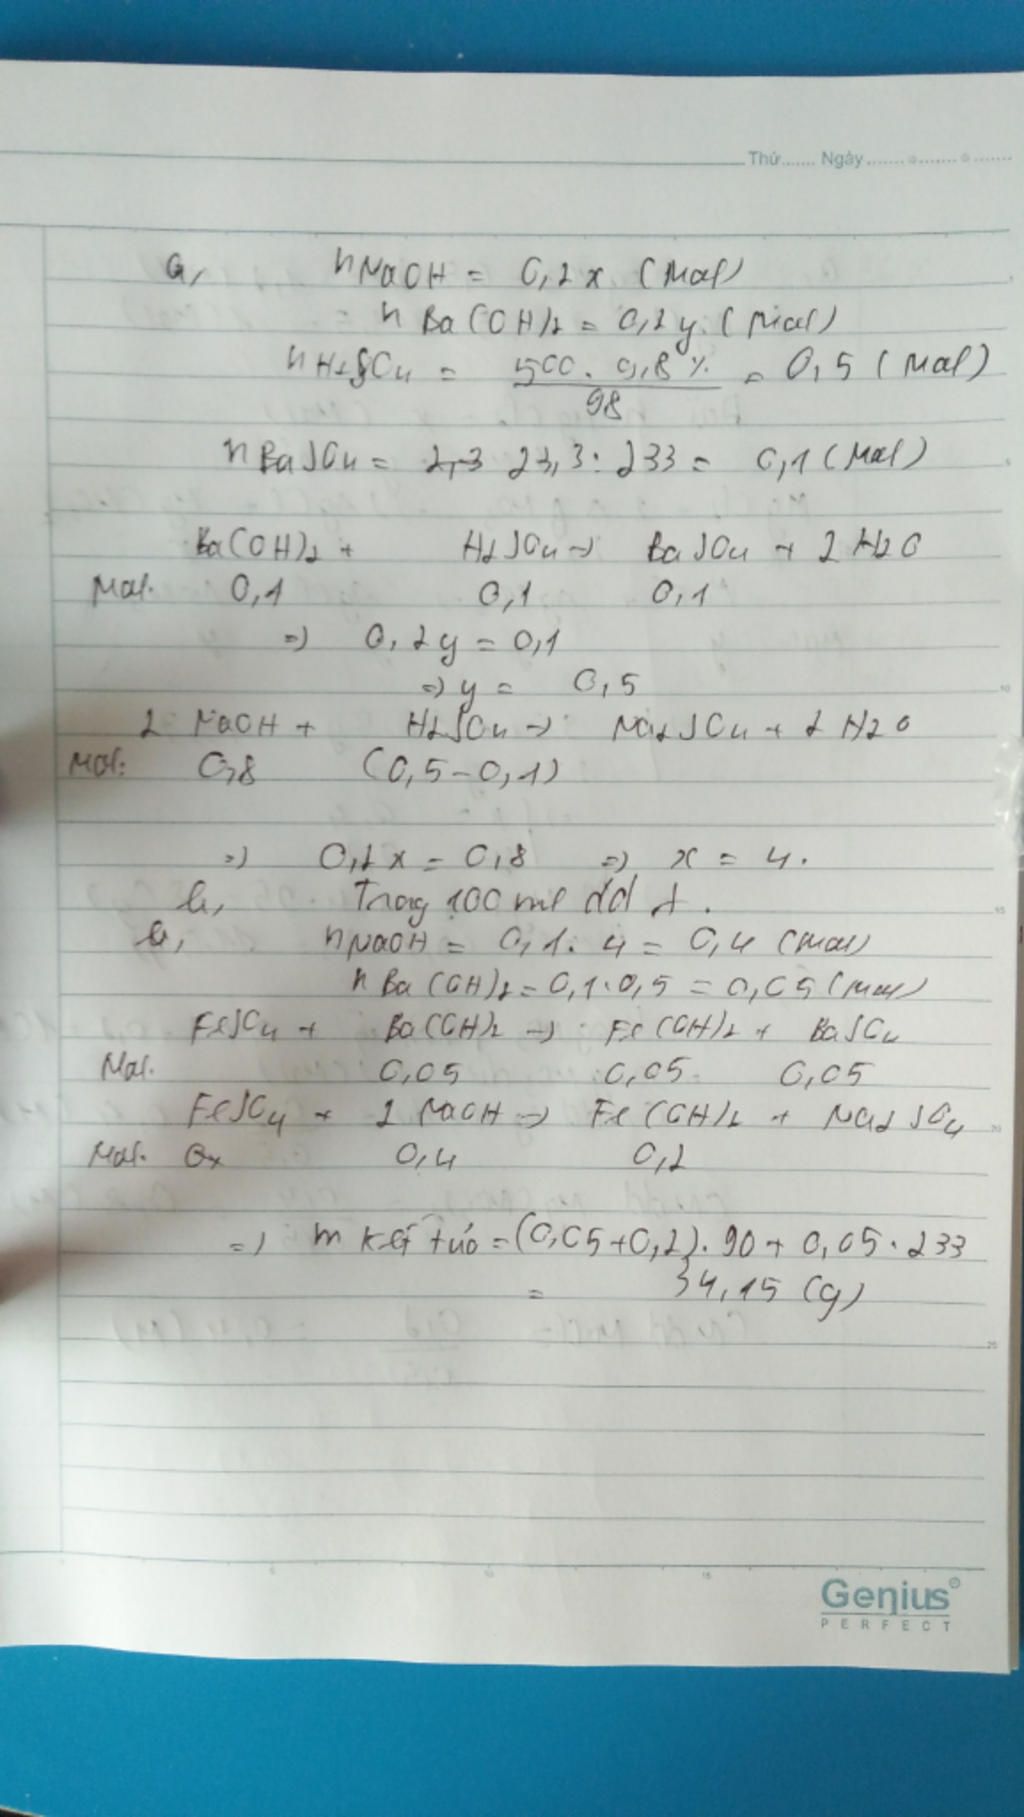 Thứ...... Ngày
a, nNaOH = 0,2x (mol)
nBa(OH)2 = 0,2y (mol)
nH2SO4 = 500.9,8% / 98 = 0,5 (mol)
nBaSO4 = 23,3 : 233 = 0,1 (mol)
Ba(OH)2 + H2SO4 -> BaSO4 + 2H2O
Mol: 0,1 0,1 0,1
=) 0,2y = 0,1
=) y = 0,5
2NaOH + H2SO4 -> Na2SO4 + 2H2O
Mol: 0,8 (0,5-0,1)
=) 0,2x = 0,8 =) x = 4.
b, Trong 100 ml dd A.
b, nNaOH = 0,1.4 = 0,4 (mol)
nBa(OH)2 = 0,1.0,5 = 0,05 (mol)
FeSO4 + Ba(OH)2 -> Fe(OH)2 + BaSO4
Mol. 0,05 0,05 0,05
FeSO4 + 2NaOH -> Fe(OH)2 + Na2SO4
Mol. 0,4 0,2
=) m kết tủa = (0,05+0,2).90 + 0,05.233
= 34,15 (g)
Genius
PERFECT